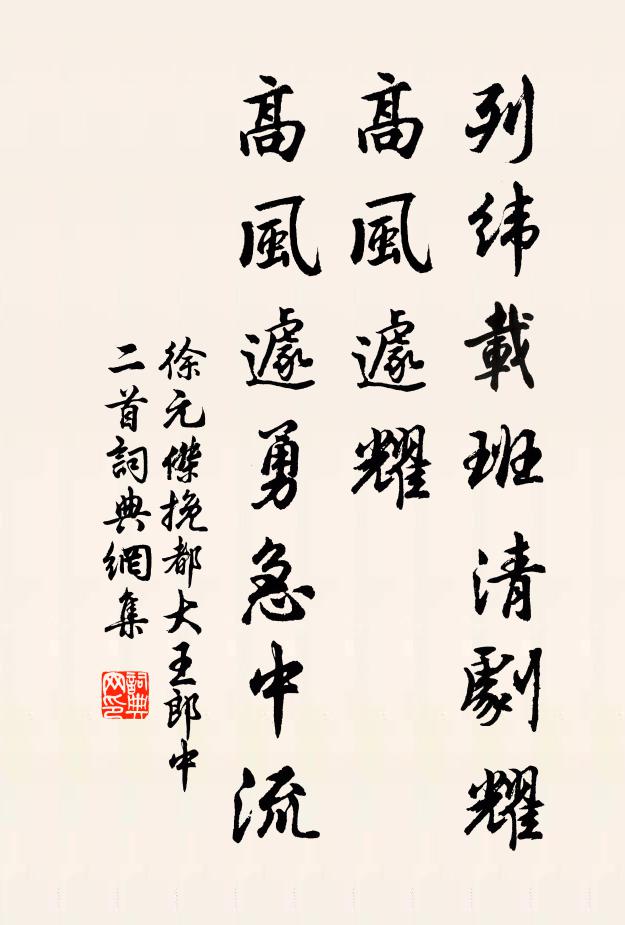 列緯載班清劇耀
高風遽耀
高風遽勇急中流
徐元傑挽都大王郎中
二首詞典網集
詞典
网印